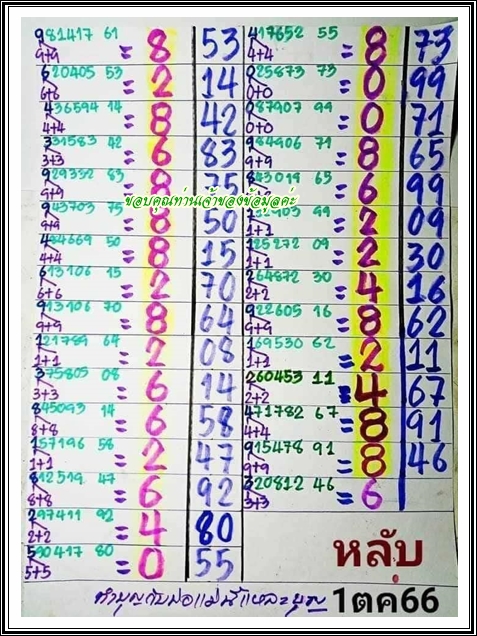 981417 61
9+9 = 8 53
620405 53
6+6 = 2 14
436594 14
4+4 = 8 42
331583 42
3+3 = 6 83
929332 83
9+9 = 8 75
943703 75
9+9 = 8 50
484669 50
4+4 = 8 15
613106 15
6+6 = 2 70
913106 70
9+9 = 8 64
121789 64
1+1 = 2 08
375805 08
3+3 = 6 14
845093 14
8+8 = 6 58
157196 58
1+1 = 2 47
812519 47
8+8 = 6 92
297411 92
2+2 = 4 80
590417 80
5+5 = 0 55
417652 55
4+4 = 8 73
025873 73
0+0 = 0 99
087907 99
0+0 = 0 71
984906 71
9+9 = 8 65
843019 65
= 6 99
903 99
1+1 = 2 09
125272 09
1+1 = 2 30
264872 30
2+2 = 4 16
922605 16
9+9 = 8 62
169530 62
1+1 = 2 11
260453 11
2+2 = 4 67
471782 67
4+4 = 8 91
915478 91
9+9 = 8 46
320812 46
3+3 = 6
ขอบคุณท่านเจ้าของข้อมูลค่ะ
หลับ
ทำบุญกับพ่อแม่นี่แหละบุญ
1ตค66